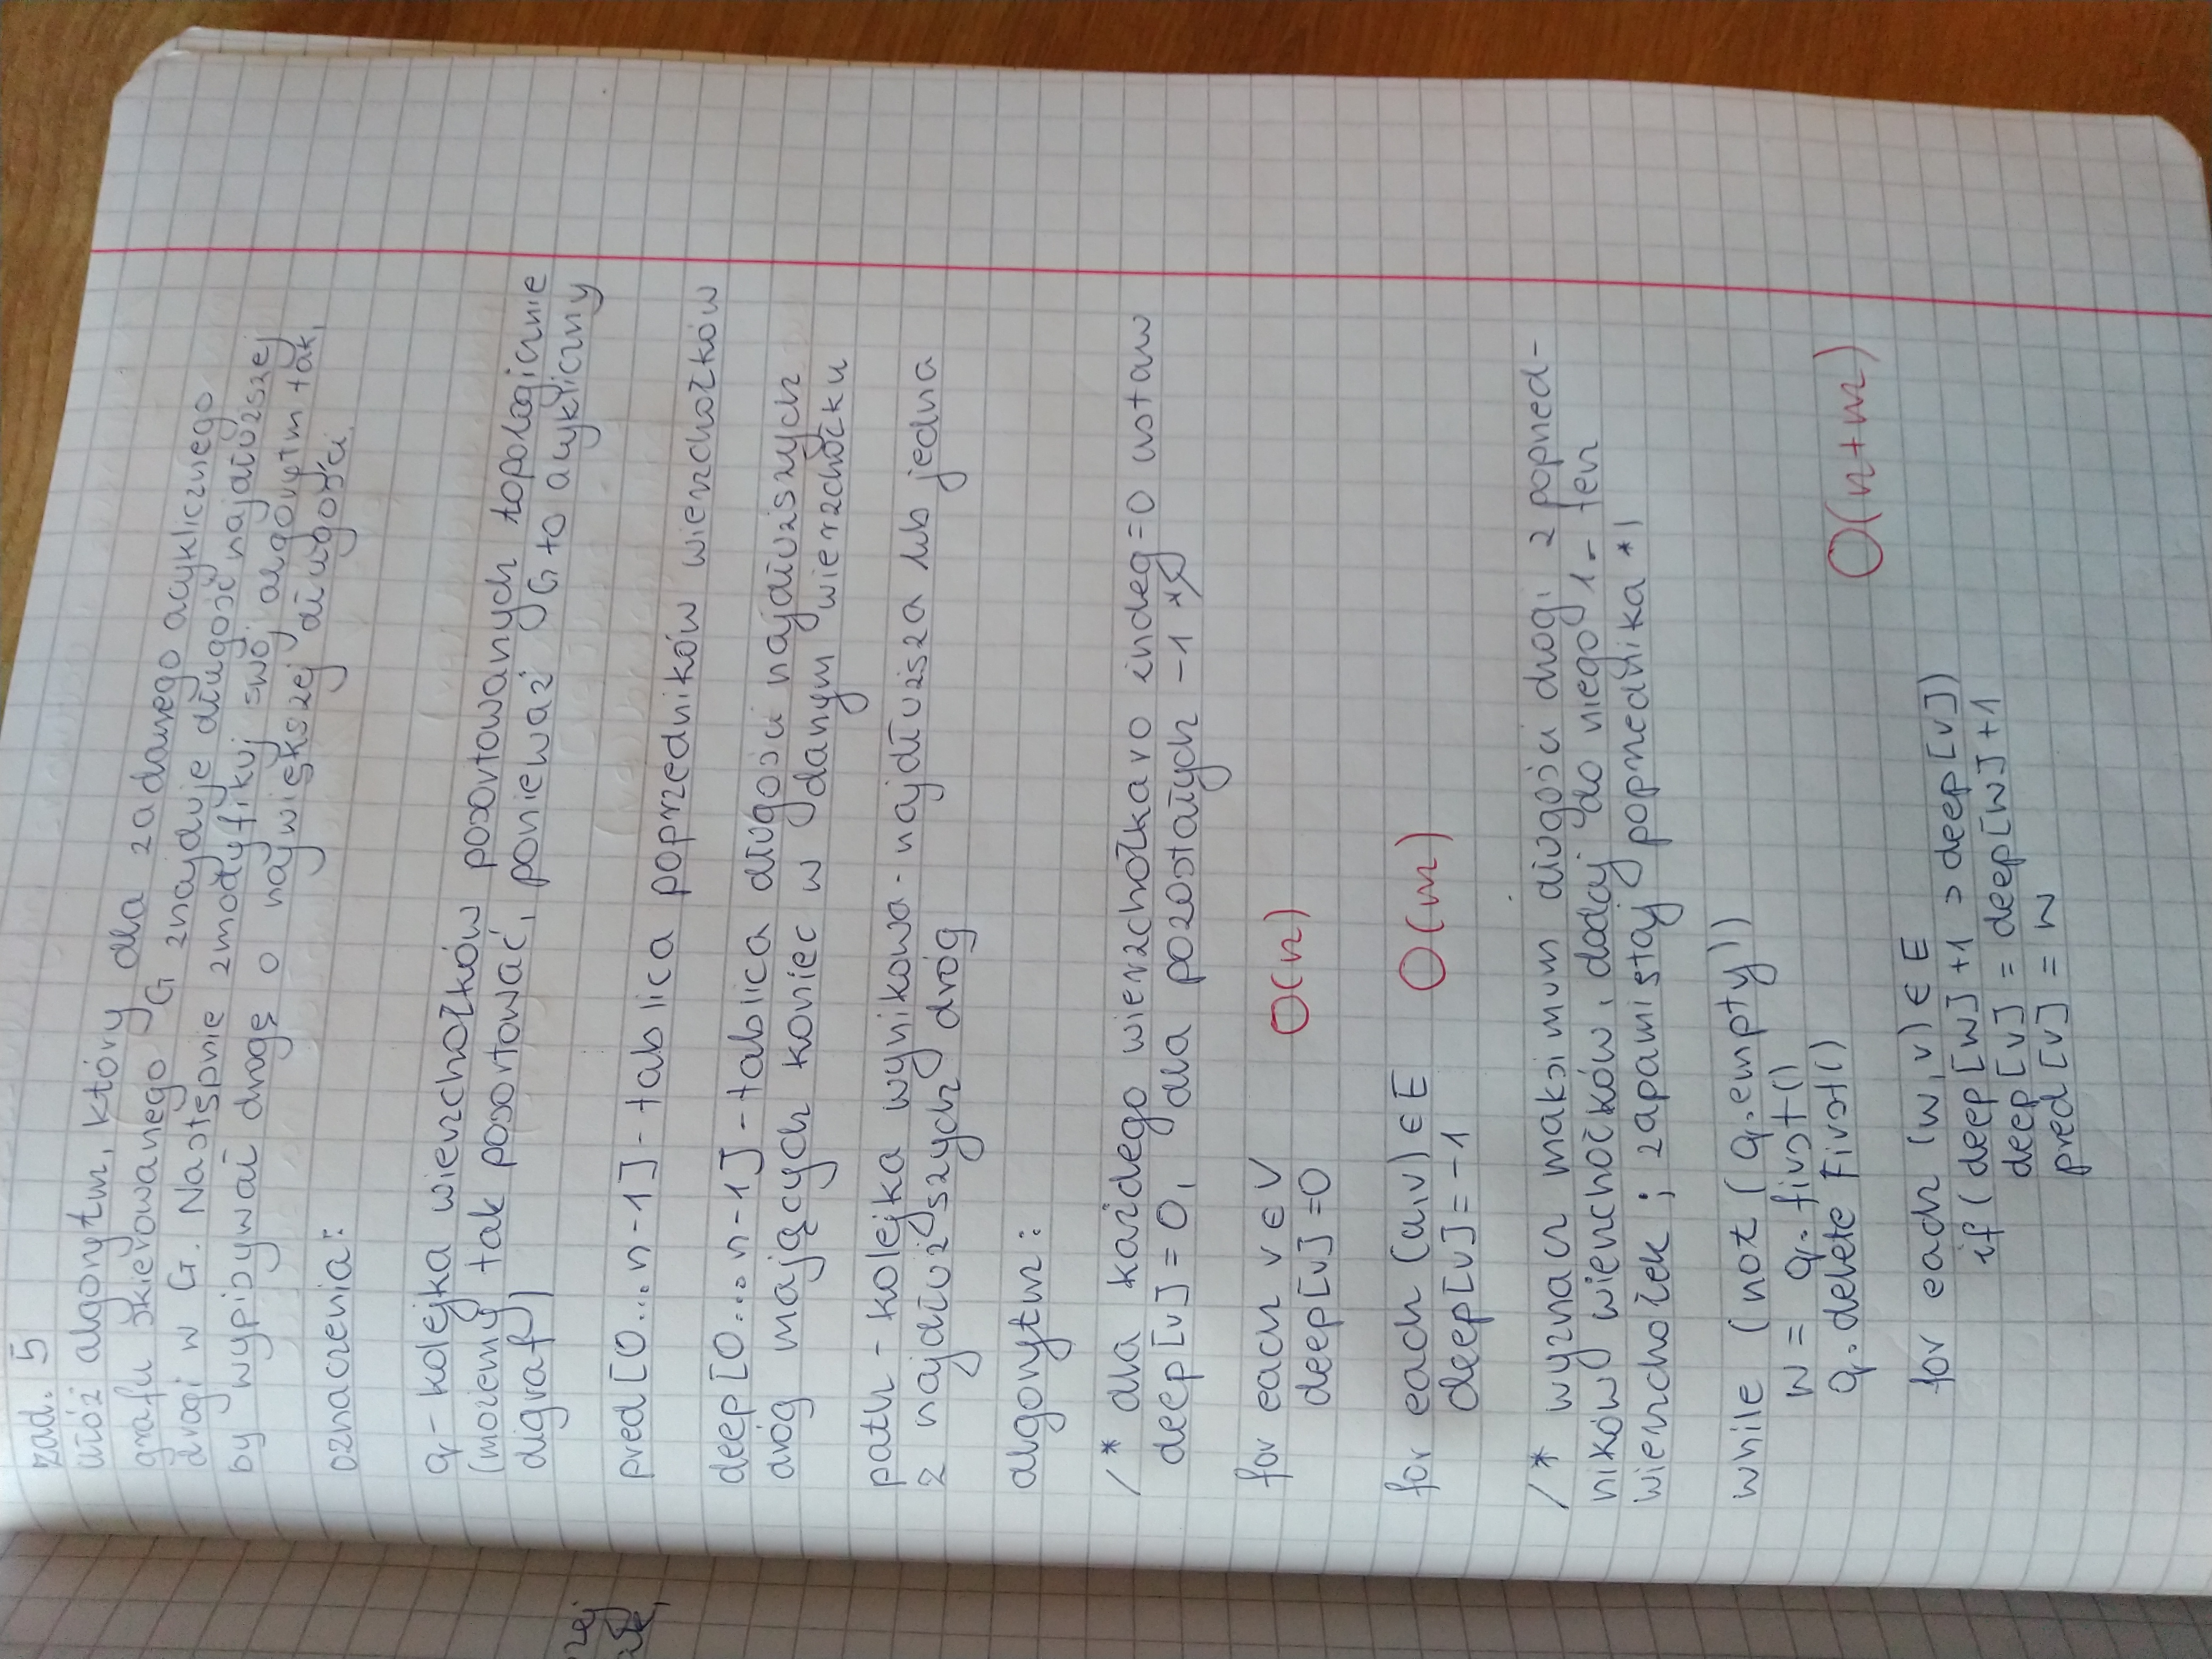 zad. 5
Ułóż algorytm, który dla zadanego acyklicznego
grafu skierowanego G znajduje długość najdłuższej
drogi w G. Następnie zmodyfikuj swój algorytm tak,
by wypisywał drogę o największej długości.
oznaczenia:
q - kolejka wierzchołków posortowanych topologicznie
(możemy tak posortować, ponieważ G to acykliczny
digraf)
pred[0...n-1] - tablica poprzedników wierzchołków
deep[0...n-1] - tablica długości najdłuższych
dróg mających koniec w danym wierzchołku
path - kolejka wynikowa - najdłuższa lub jedna
z najdłuższych dróg
algorytm:
/* dla każdego wierzchołka v o indeg=0 ustaw
deep[v] = 0, dla pozostałych -1 */
for each v ∈ V O(n)
deep[v] = 0
for each (u,v) ∈ E O(m)
deep[v] = -1
/* wyznacz maksimum długości drogi z poprzed-
ników wierzchołków, dodaj do niego 1 - ten
wierzchołek ; zapamiętaj poprzednika */
while (not (q.empty))
w = q.first()
q.deleteFirst()
O(n+m)
for each (w,v) ∈ E
if (deep[w] +1 > deep[v])
deep[v] = deep[w] +1
pred[v] = w